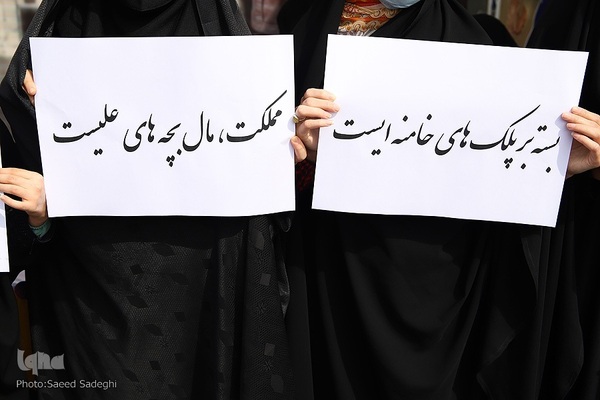 بسته بر پلک های خامنه ایست
مملکت، مال بچه های علیست
iqna
Photo:Saeed Sadeghi